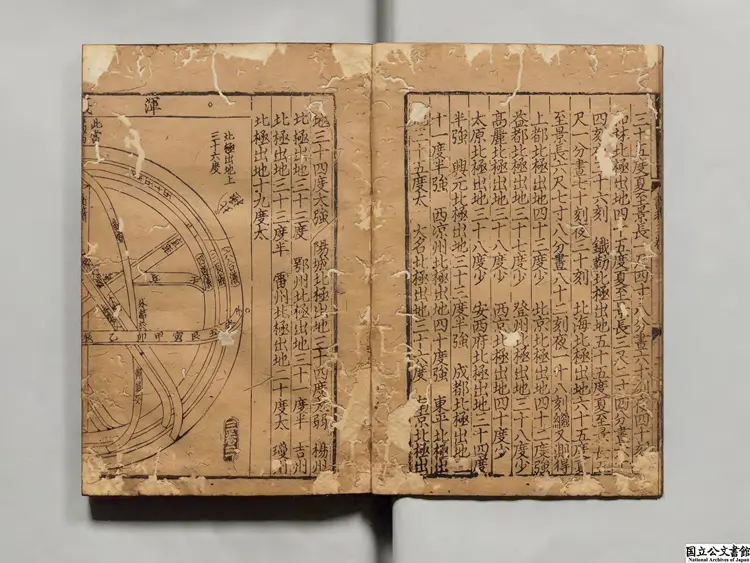 三十五度夏至景長一尺四寸八分晝六十刻夜四十刻
和林北極出地四十五度夏至景長三尺二寸四分晝六十
四刻夜三十六刻 鐵勒北極出地五十五度夏至景長五
尺一分晝七十刻夜三十刻 北海北極出地六十五度夏
至景長六尺七寸八分晝八十二刻夜一十八刻繼又測得
上都北極出地四十三度少 北京北極出地四十二度強
益都北極出地三十七度少 登州北極出地三十八度少
高麗北極出地三十八度少 西京北極出地四十度少
太原北極出地三十八度少 安西府北極出地三十四度
半強 興元北極出地三十三度半強 成都北極出地三
十一度半強 西涼州北極出地四十度強 東平北極出
地三十五度太 大名北極出地三十六度 南京北極出
地三十四度太強 陽城北極出地三十四度太弱 揚州
北極出地三十三度 鄂州北極出地三十一度半 吉州
北極出地三十三度半 雷州北極出地二十度太 瓊州
北極出地十九度太
渾
北極出地上
三十六度
乙卯甲寅
国立公文書館
National Archives of Japan